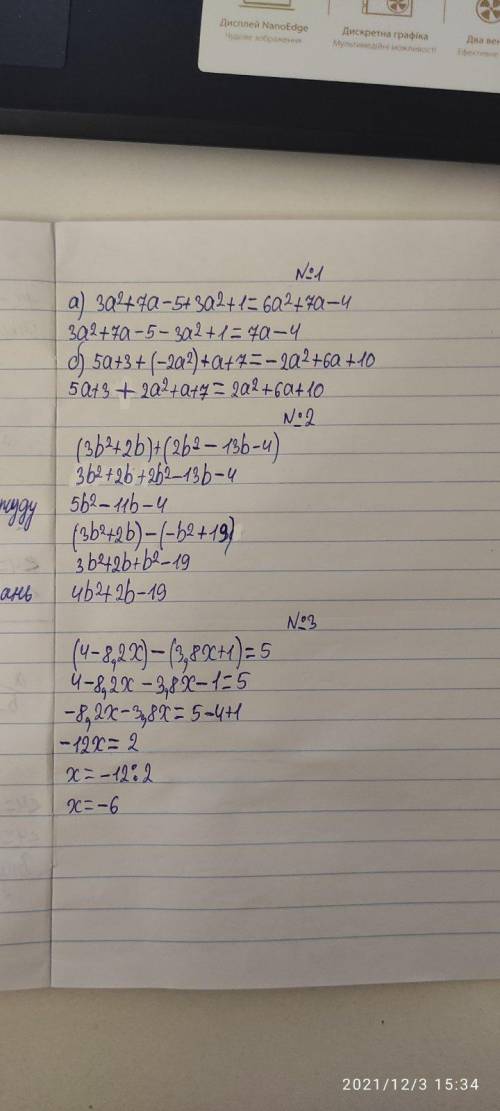 Дисплей NanoEdge
Чудове зображення
Дискретна графіка
Мультимедійні можливості
Два вен
Ефективне
№1
а) 3a²+7a-5+3a²+1=6a²+7a-4
3a²+7a-5-3a²+1=7a-4
б) 5a+3+(-2a²)+a+7=-2a²+6a+10
5a+3+2a²+a+7=2a²+6a+10
№2
(3b²+2b)+(2b²-13b-4)
3b²+2b+2b²-13b-4
5b²-11b-4
(3b²+2b)-(-b²+19)
3b²+2b+b²-19
4b²+2b-19
№3
(4-8,2x)-(3,8x+1)=5
4-8,2x-3,8x-1=5
-8,2x-3,8x=5-4+1
-12x=2
x=-12:2
x=-6
ань
2021/12/3 15:34